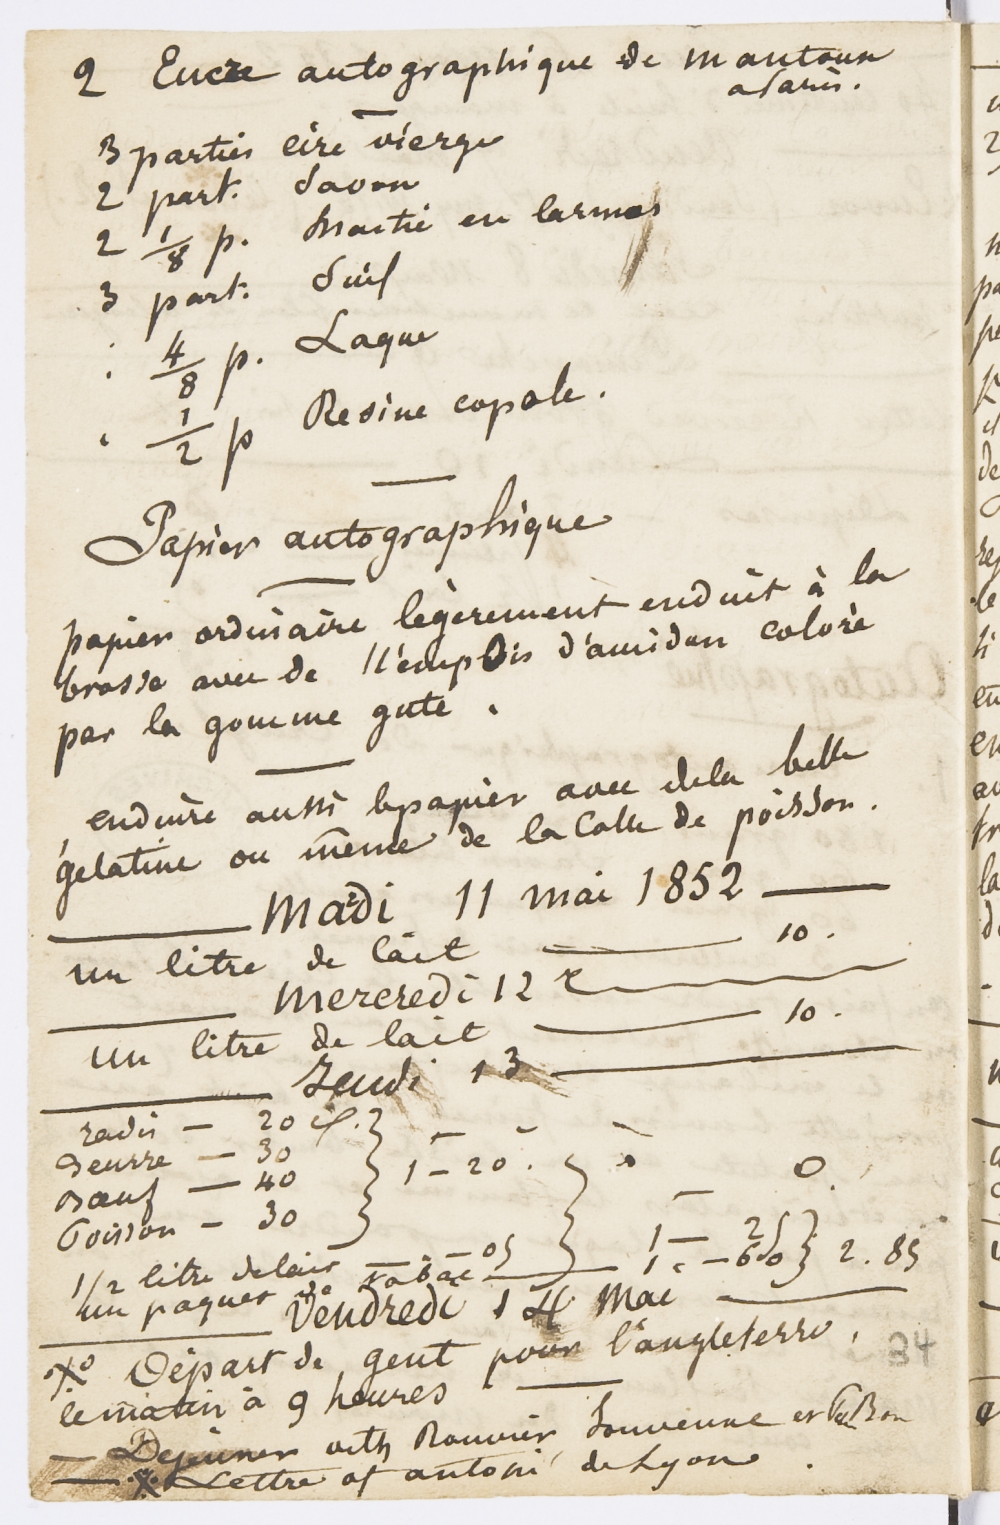 2 Encre autographique de mantoux
a Paris.
3 parties cire vierge
2 part. Savon
2 1/8 p. Mastic en larmes
3 part. Suif
4/8 p. Laque
1/2 p Resine copale.
Papier autographique
papier ordinaire legerement enduit à la
brosse avec de l'emplois d'amidon colorè
par la gomme gute.
enduire aussi le papier avec dela belle
gelatine ou même de la Colle de poisson.
Mardi 11 mai 1852
un litre de lait 10.
Mercredi 12
un litre de lait 10.
Jeudi 13
radis — 20
Beurre — 30
Bœuf — 40
Poisson — 30
1 — 20.
0.
1/2 litre de lait 05
1 — 25
un paquet de tabac
1. — 60
2. 85
Vendredi 14 Mai
Départ de gent pour l'angleterre,
le matin à 9 heures
34
— Dejeuner with Rouvier, Souvenne et
Lettre of antoni de Lyon.